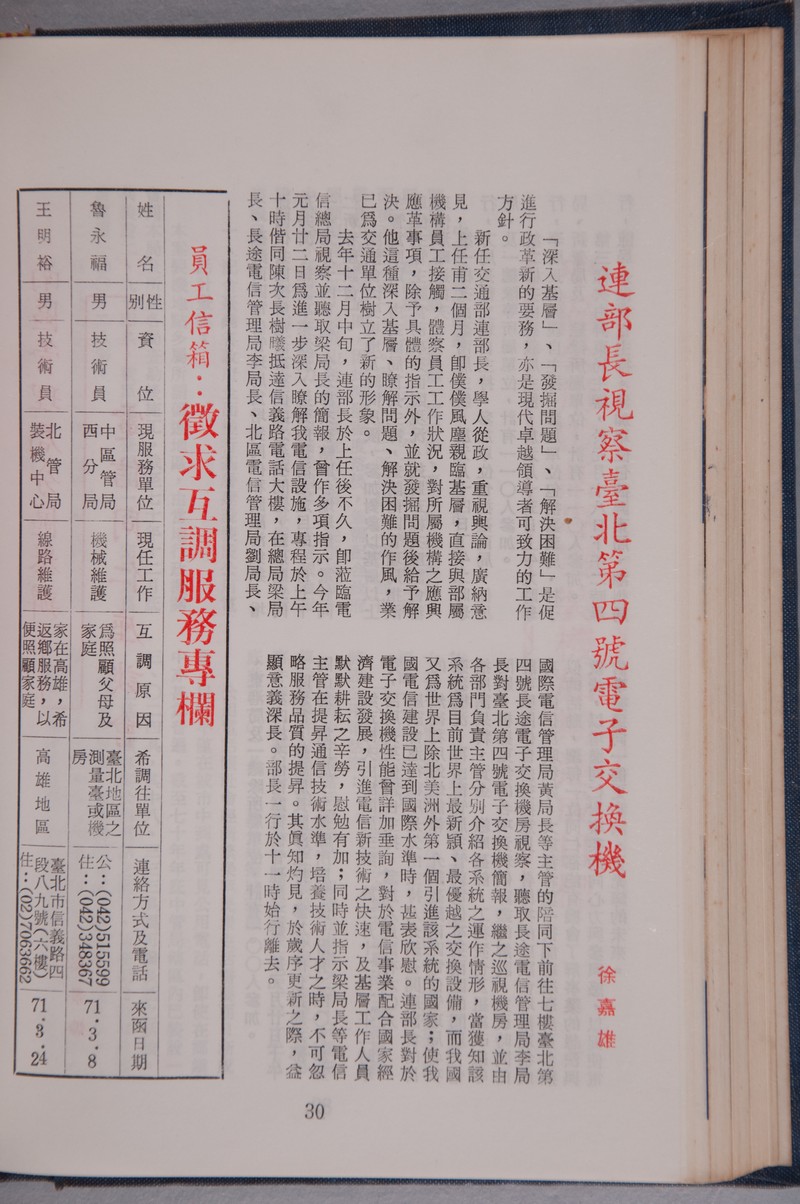 連部長視察臺北第四號電子交換機
徐嘉雄
「深入基層」、「發掘問題」、「解決困難」是促
進行政革新的要務，亦是現代卓越領導者可致力的工作
方針。
新任交通部連部長，學人從政，重視輿論，廣納意
見，上任甫二個月，即僕僕風塵親臨基層，直接與部屬
機構員工接觸，體察員工工作狀況，對所屬機構之應興
應革事項，除予具體的指示外，並就發掘問題後給予解
決。他這種深入基層、瞭解問題、解決困難的作風，業
已為交通單位樹立了新的形象。
去年十二月中旬，連部長於上任後不久，即蒞臨電
信總局視察並聽取梁局長的簡報，曾作多項指示。今年
元月廿二日為進一步深入瞭解我電信設施，專程於上午
十時偕同陳次長樹曦抵達信義路電話大樓，在總局梁局
長、長途電信管理局李局長、北區電信管理局劉局長、
國際電信管理局黃局長等主管的陪同下前往七樓臺北第
四號長途電子交換機房視察，聽取長途電信管理局李局
長對臺北第四號電子交換機簡報，繼之巡視機房，並由
各部門負責主管分別介紹各系統之運作情形，當獲知該
系統為目前世界上最新穎、最優越之交換設備，而我國
又為世界上除北美洲外第一個引進該系統的國家；使我
國電信建設已達到國際水準時，甚表欣慰。連部長對於
電子交換機性能曾詳加垂詢，對於電信事業配合國家經
濟建設發展，引進電信新技術之快速，及基層工作人員
默默耕耘之辛勞，慰勉有加；同時並指示梁局長等電信
主管在提昇通信技術水準，培養技術人才之時，不可忽
略服務品質的提昇。其真知灼見，於歲序更新之際，益
顯意義深長。部長一行於十一時始行離去。
員工信箱：徵求互調服務專欄
姓名
性別
資位
現服務單位
現任工作
互調原因
希調往單位
連絡方式及電話
來函日期
魯永福
男
技術員
中區管局
西分局
機械維護
為照顧父母及
家庭
臺北地區之
測量臺或機
房
公：(042)515599
住：(042)348367
71.3.8
王明裕
男
技術員
北管局
裝機中心
線路維護
家在高雄，希
返鄉服務，以
便照顧家庭
高雄地區
臺北市信義路四
段八九號(六樓)
住：(02)7063662
71.3.24
30